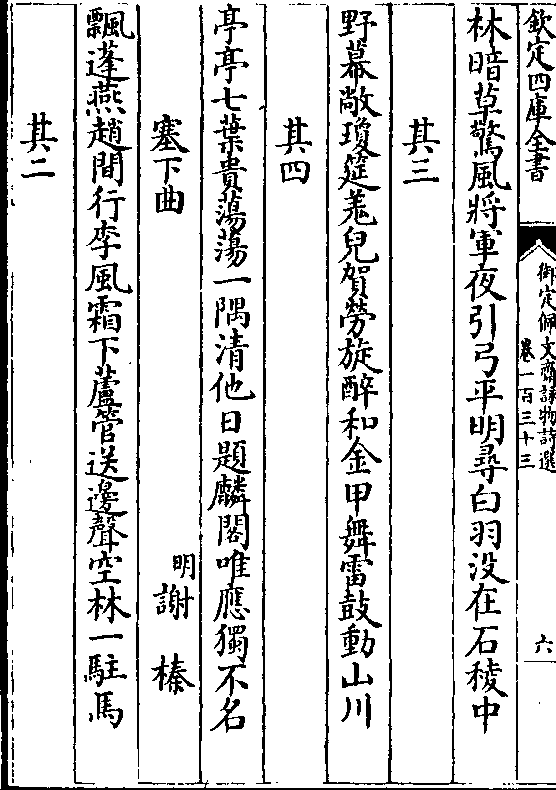 欽定四庫全書
御定佩文齋詠物詩選
卷一百三十三
六
林暗草驚風將軍夜引弓平明尋白羽没在石稜中
其三
野幕敞瓊筵羗兒賀勞旋醉和金甲舞雷鼓動山川
其四
亭亭七葉貴蕩蕩一隅清他日題麟閣唯應獨不名
塞下曲
明謝榛
飄蓬燕趙間行李風霜下蘆管送邊聲空林一駐馬
其二